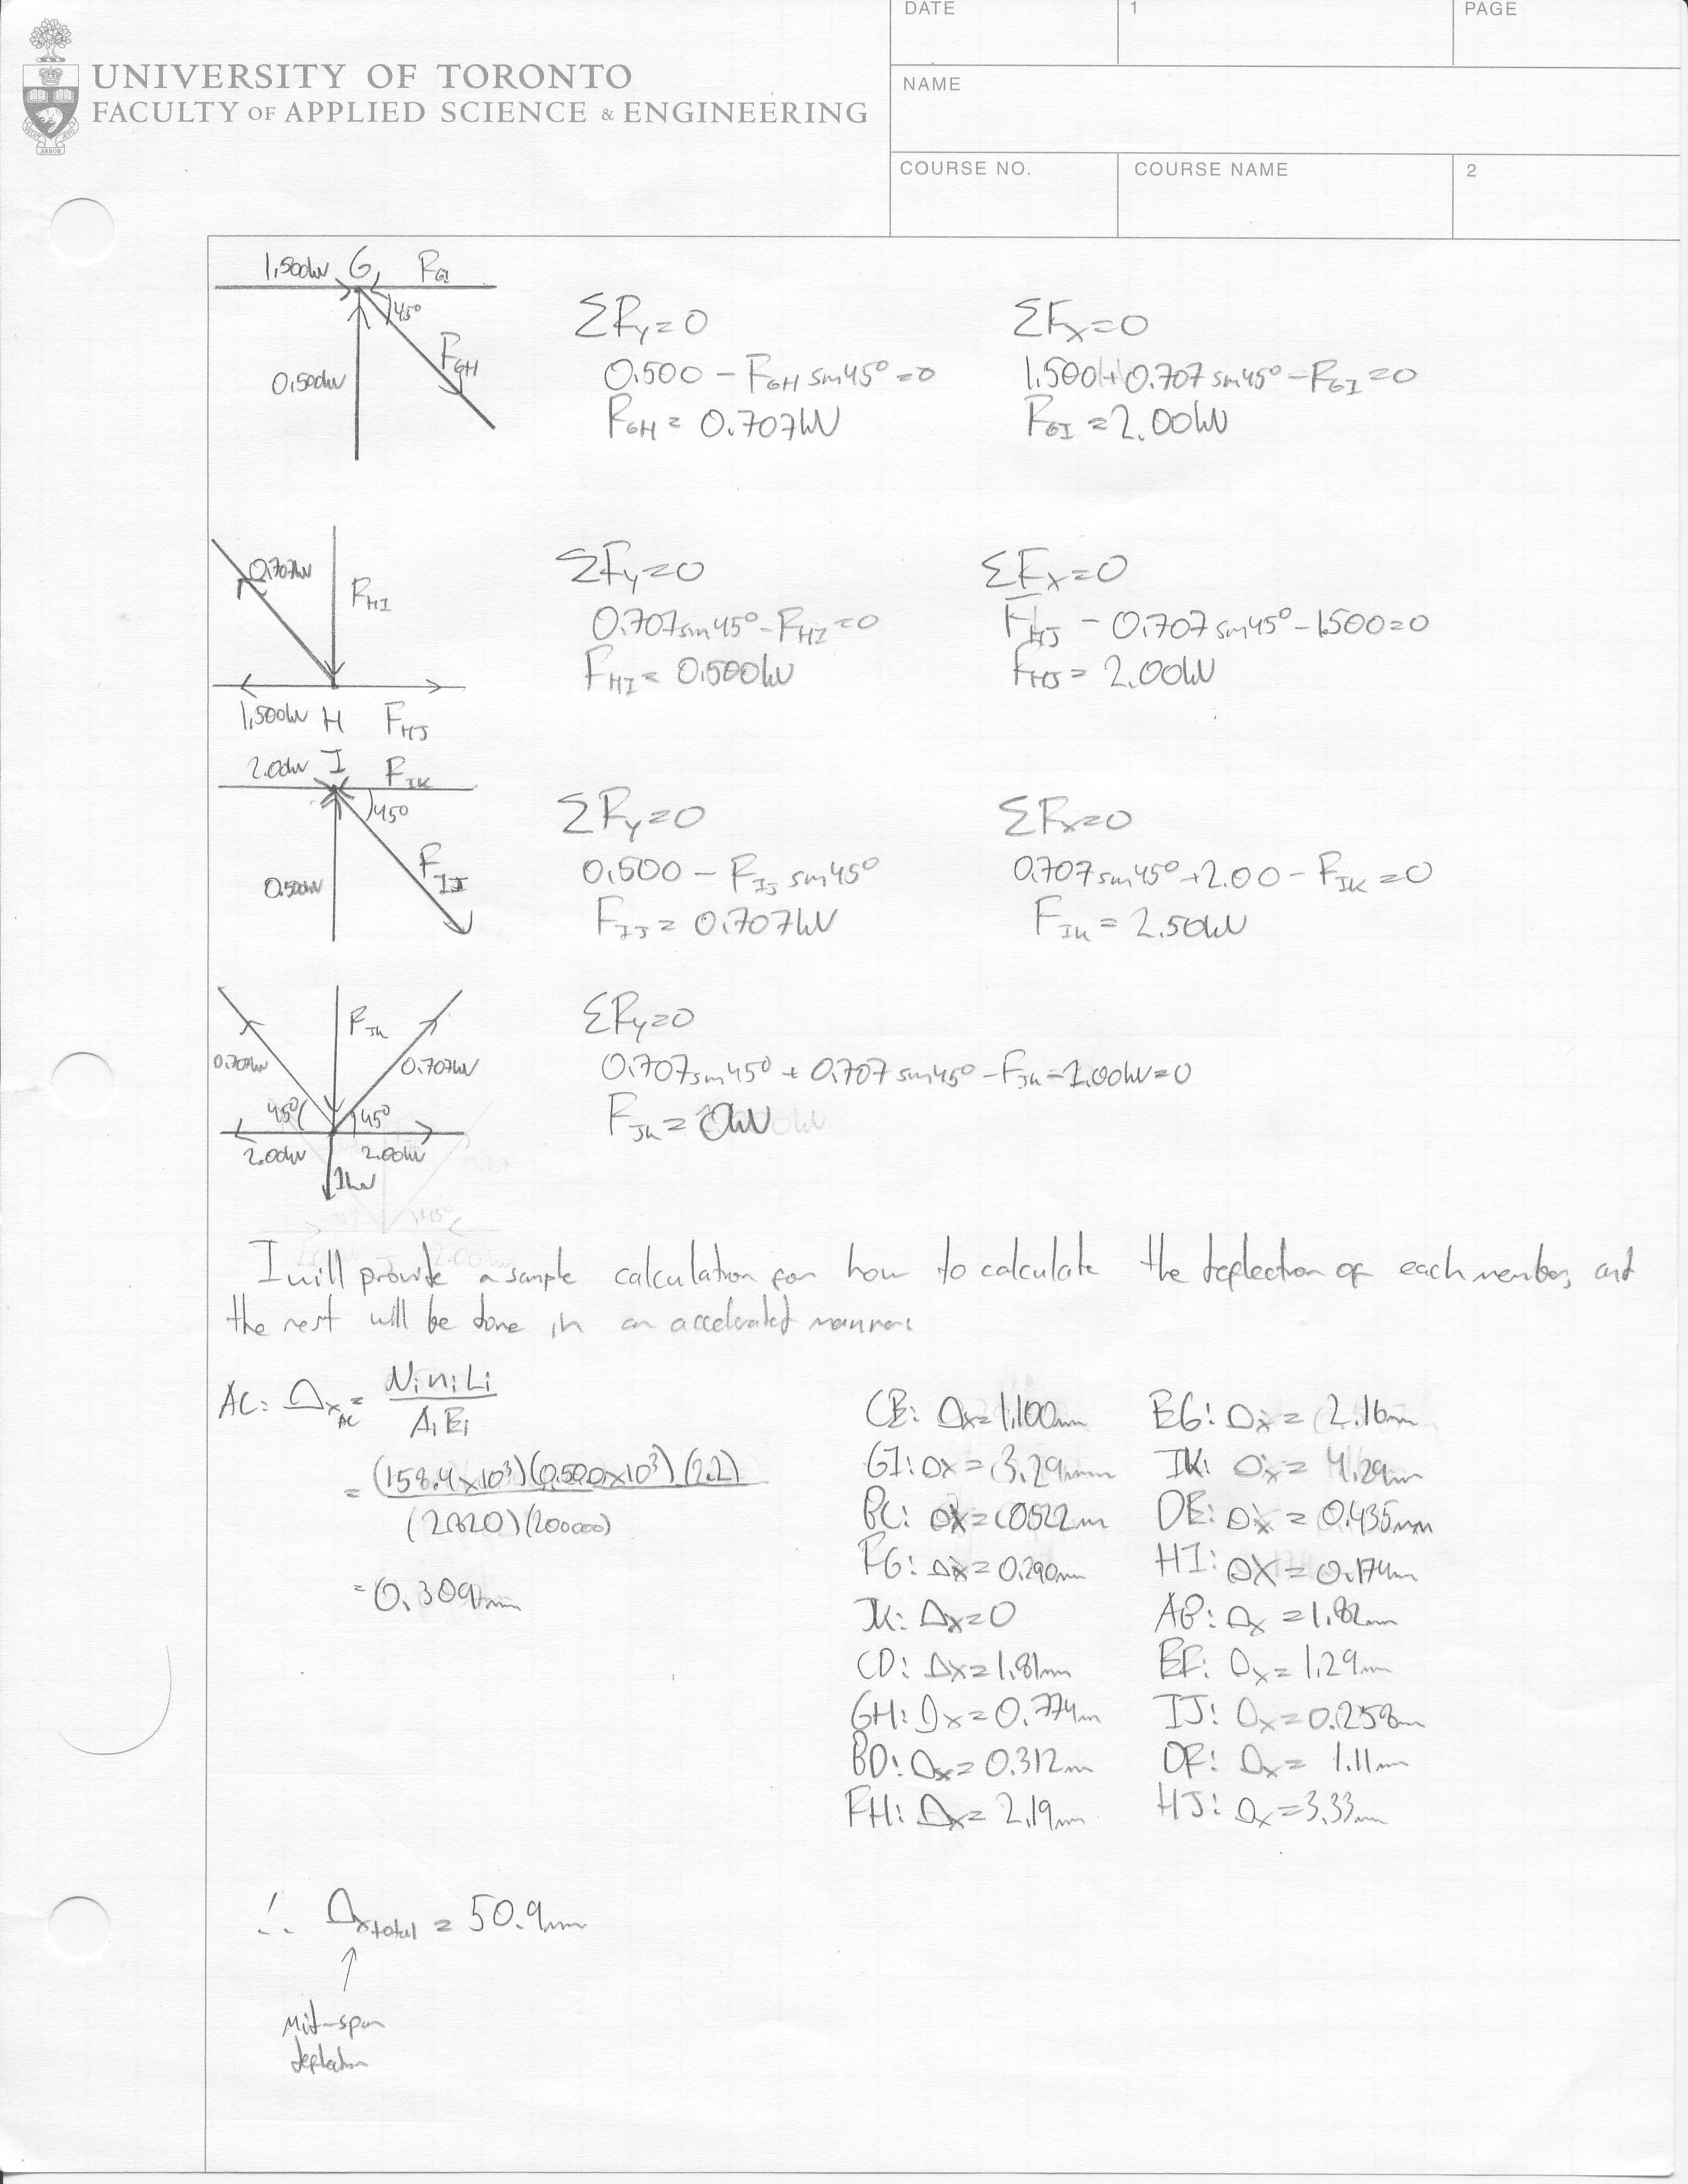 DATE
1
PAGE
UNIVERSITY OF TORONTO
FACULTY OF APPLIED SCIENCE & ENGINEERING
NAME
COURSE NO.
COURSE NAME
2
ARBOR
1.500kN G F_GI
45°
F_GH
0.500kN
ΣF_y=0
0.500 - F_GH sin45°=0
F_GH = 0.707kN
ΣF_x=0
1.500+0.707 sin45° - F_GI=0
F_GI = 2.00kN
0.707kN
F_HI
1.500kN H F_HJ
ΣF_y=0
0.707sin45° - F_HI=0
F_HI = 0.500kN
ΣF_x=0
F_HJ - 0.707sin45° - 1.500=0
F_HJ = 2.00kN
2.00kN I F_IK
45°
F_IJ
0.500kN
ΣF_y=0
0.500 - F_IJ sin45°
F_IJ = 0.707kN
ΣF_x=0
0.707sin45° + 2.00 - F_IK=0
F_IK = 2.50kN
F_JK
0.707kN 0.707kN
45° 45°
2.00kN 2.00kN
1kN
ΣF_y=0
0.707sin45° + 0.707sin45° - F_JK - 1.00kN=0
F_JK = 0kN
I will provide a sample calculation for how to calculate the deflection of each member, and
the rest will be done in an accelerated manner:
AC: Δx_AC = NiniLi / AiEi
= (158.4x10³)(0.500x10³)(2.2) / (2820)(200000)
= 0.309mm
CE: Δx=1.100mm EG: Δx= 2.16mm
GI: Δx=3.29mm IK: Δx= 4.29mm
BC: Δx=0.522mm DE: Δx = 0.435mm
FG: Δx=0.290mm HI: Δx=0.174mm
JK: Δx=0 AB: Δx =1.82mm
CD: Δx=1.81mm EF: Δx=1.29mm
GH: Δx=0.774mm IJ: Δx=0.258mm
BD: Δx=0.312mm DF: Δx= 1.11mm
FH: Δx= 2.19mm HJ: Δx=3.33mm
∴ Δx total = 50.9mm
↑
Mid-span
deflection